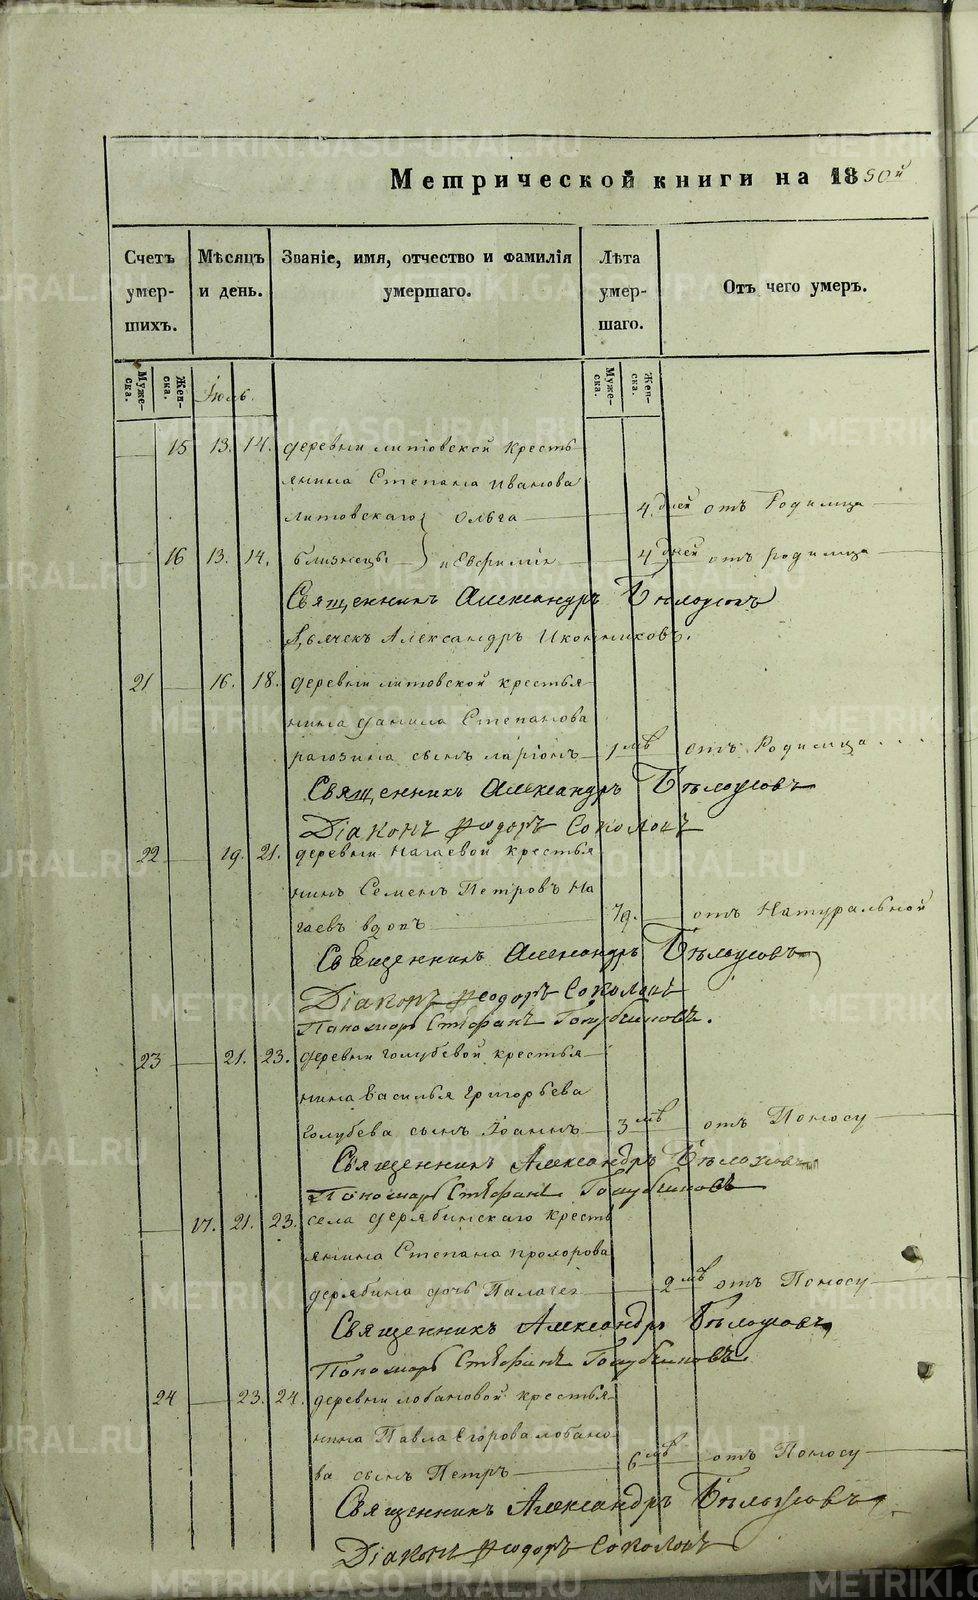 Метрической книги на 1850й
Счетъ умер-шихъ.
Мѣсяцъ и день.
Званіе, имя, отчество и фамилія умершаго.
Лѣта умер-шаго.
Отъ чего умеръ.
Муже-ска.
Жен-ска.
Іюль.
Муже-ска.
Жен-ска.
15 13. 14. деревни литовской кресть
янина Степана Иванова
литовскаго Ольга 4 дней отъ Родимца
16 13. 14. близнецы и Евфимія 4 дней отъ родимца
Священникъ Александръ Бѣлоусовъ
Дьячекъ Александръ Иконниковъ.
21 16. 18. деревни литовской крестья
нина Данила Степанова
рагозина сынъ ларіонъ 1 мѣ отъ Родимца
Священникъ Александръ Бѣлоусовъ
Діаконъ Феодоръ Соколовъ
22 19. 21. деревни Нагаевой крестья
нинъ Семенъ Петровъ На
гаевъ вдовъ 79. отъ Натуральной
Священникъ Александръ Бѣлоусовъ
Діаконъ Феодоръ Соколовъ
Пономарь Стефанъ Голубчиковъ.
23 21. 23. деревни голубевой крестья
нина Василья Григорьева
голубева сынъ Іоаннъ 3 мѣ отъ Поносу
Священникъ Александръ Бѣлоусовъ
Пономарь Стефанъ Голубчиковъ
17. 21. 23. села дерябинскаго кресть
янина Степана прохорова
дерябина дочь Палагея 2 мѣ отъ Поносу
Священникъ Александръ Бѣлоусовъ
Пономарь Стефанъ Голубчиковъ.
24 23. 24. деревни лобановой крестья
нина Павла Егорова лобано
ва сынъ Петръ 6 мѣ отъ Поносу
Священникъ Александръ Бѣлоусовъ
Діаконъ Феодоръ Соколовъ
METRIKI.GASO-URAL.RU